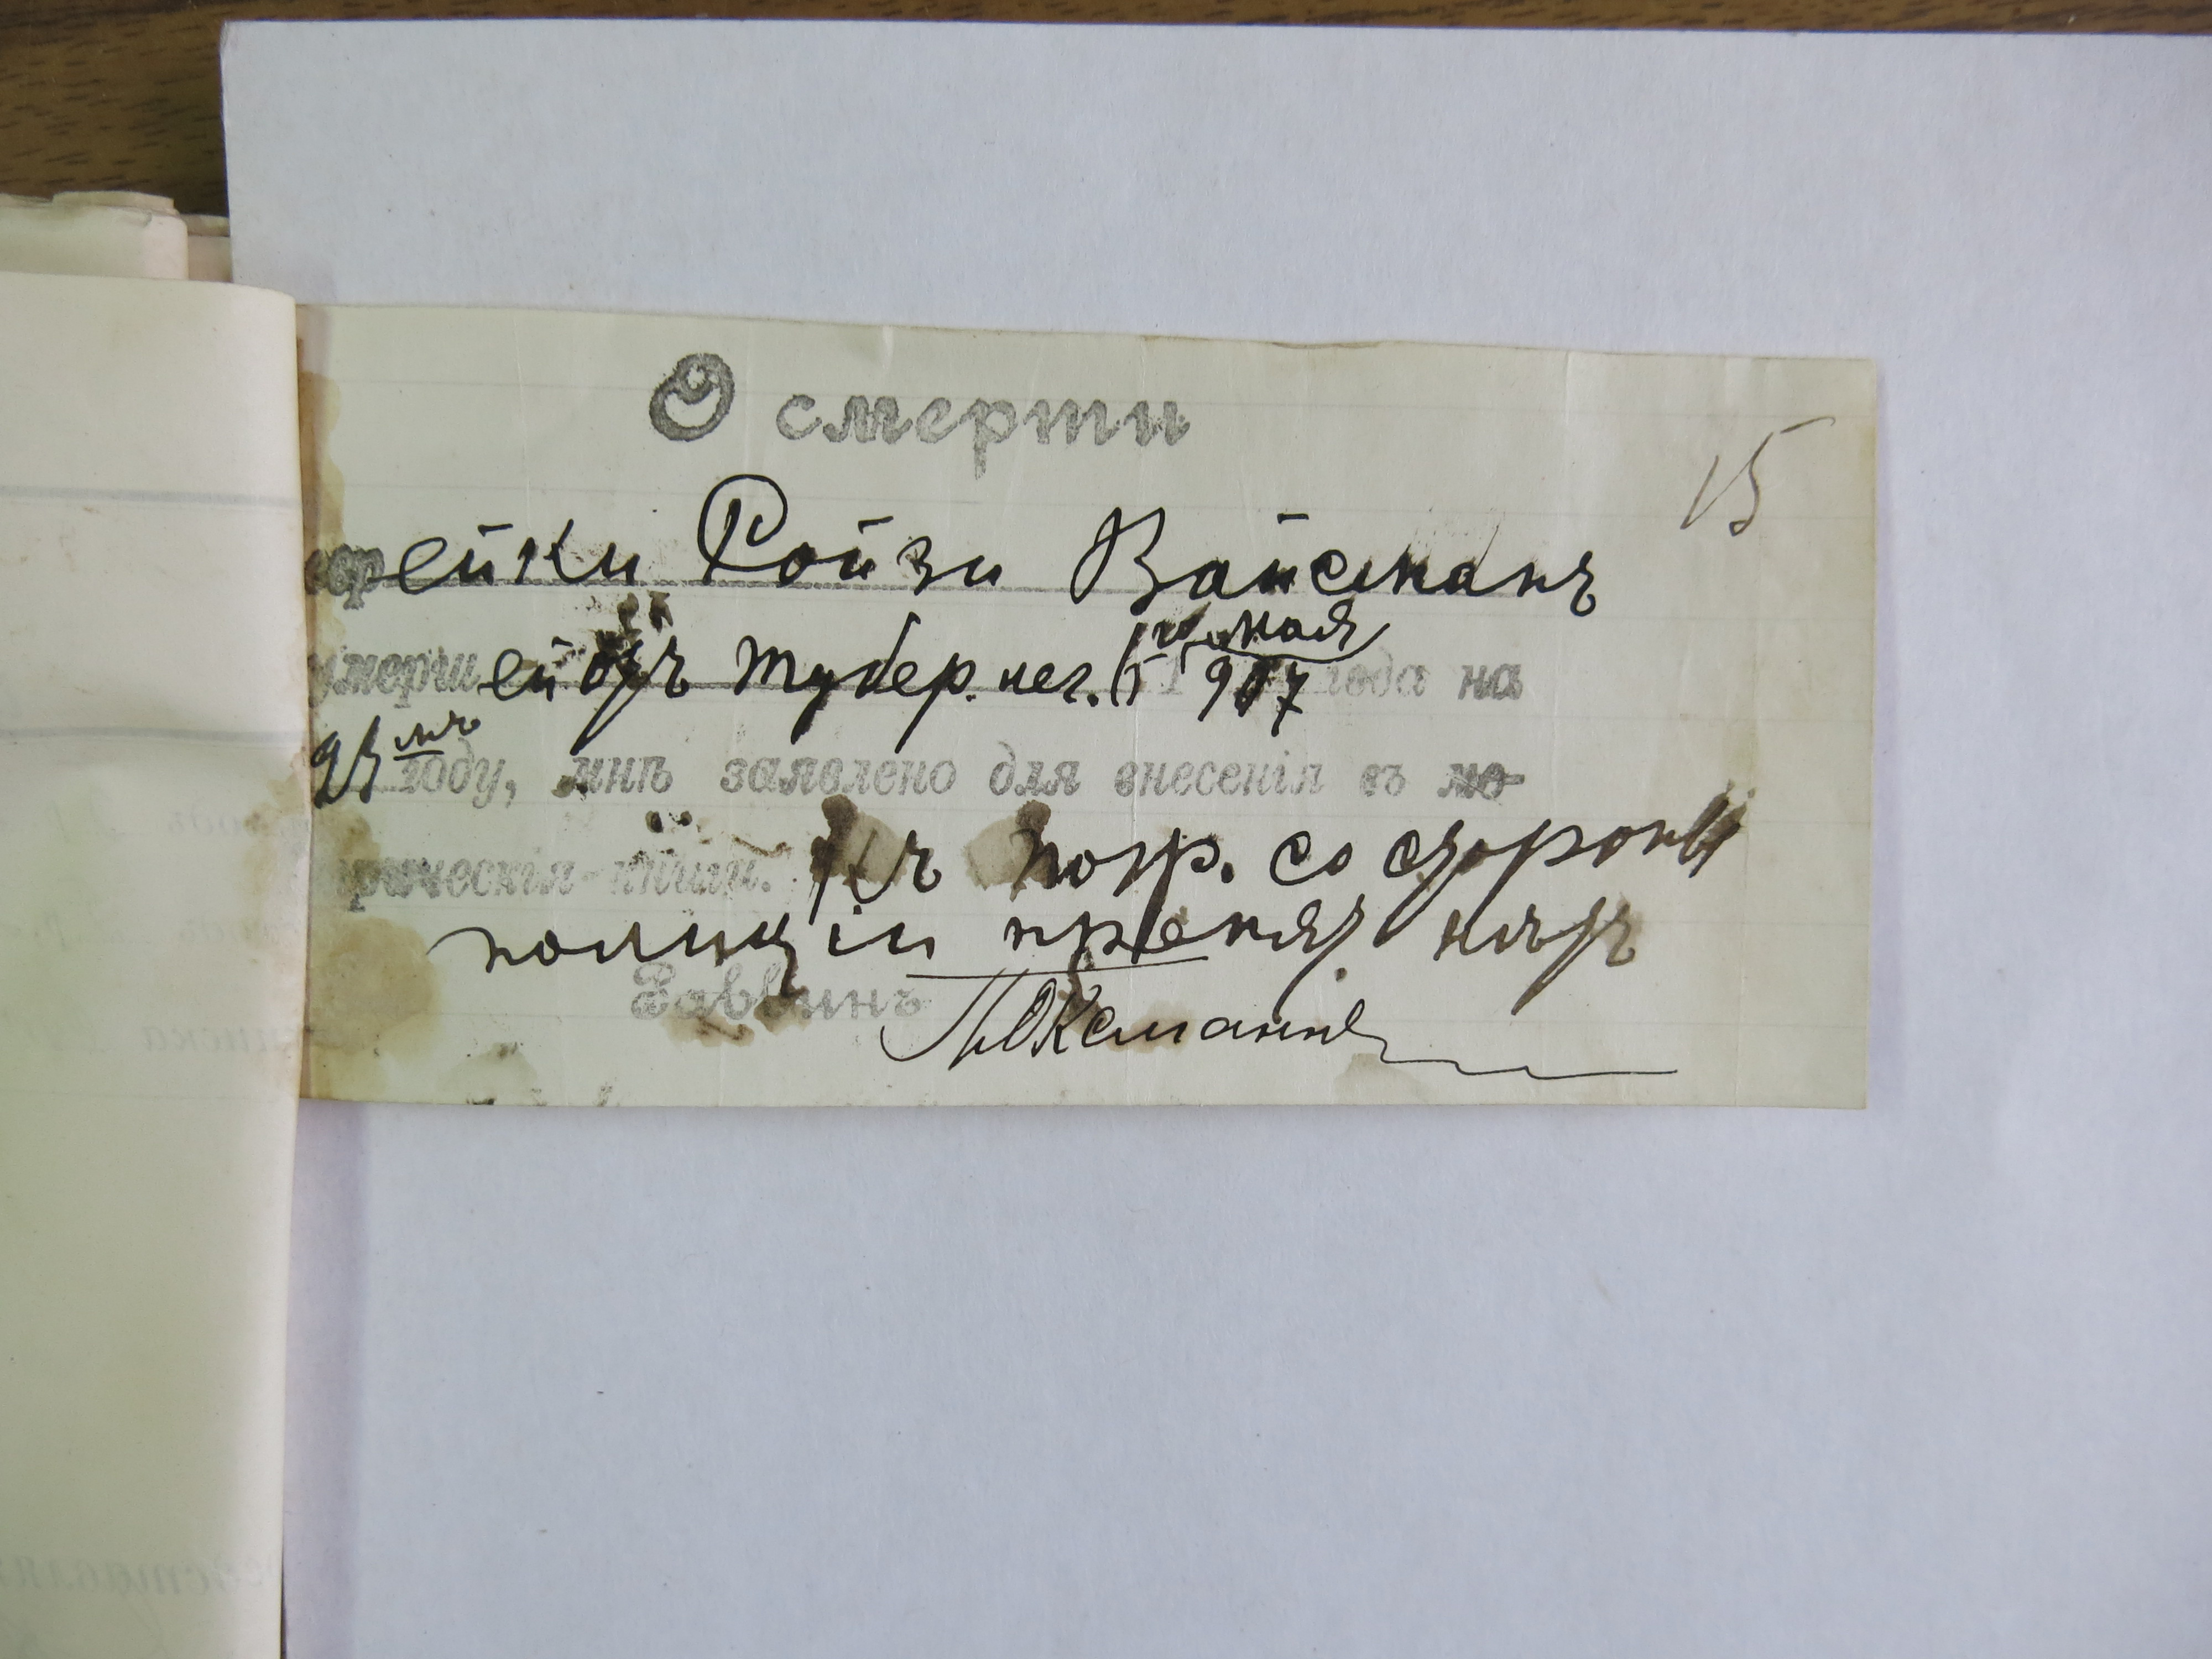 О смерти
15
еврейки Ройзи Вайсманъ
умершей отъ тубер. лег. мая
1907 года на
лѣ году, мнѣ заявлено для внесенія въ ме-
рическія книги. Къ погр. со стороны
полиціи препят нѣтъ
Раввинъ